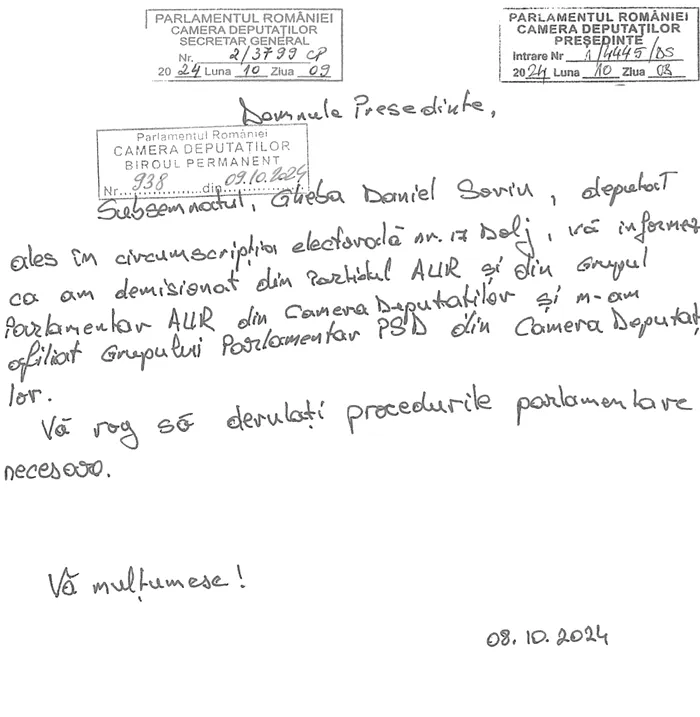 PARLAMENTUL ROMÂNIEI
CAMERA DEPUTAȚILOR
SECRETAR GENERAL
Nr. 2/3799 CP
2024 Luna 10 Ziua 09
PARLAMENTUL ROMÂNIEI
CAMERA DEPUTAȚILOR
PREȘEDINTE
Intrare Nr 1/4445/DS
2024 Luna 10 Ziua 08
Domnule Presedinte,
Parlamentul României
CAMERA DEPUTATILOR
BIROUL PERMANENT
Nr. 938 din 09.10.2024
Subsemnatul, Gheba Daniel Soriu, deputat
ales în circumscripția electorală nr. 17 Dolj, vă informez
ca am demisionat din Partidul AUR și din Grupul
Parlamentar AUR din Camera Deputatilor și m-am
afiliat Grupului Parlamentar PSD din Camera Deputaț
lor.
Vă rog să derulați procedurile parlamentare
necesare.
Vă mulțumesc!
08.10.2024